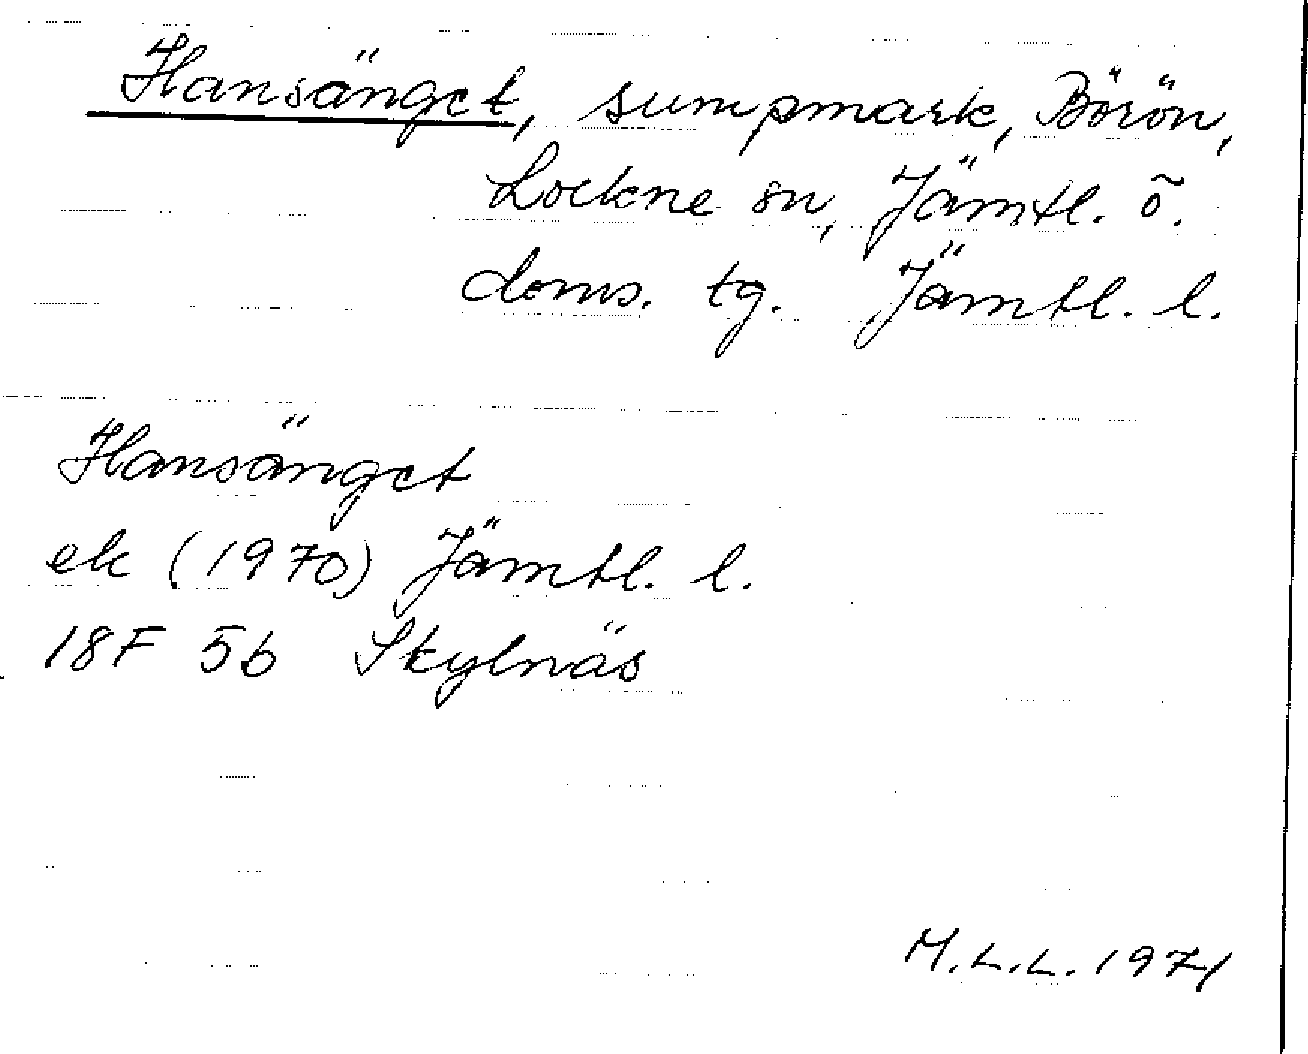 Hansänget, sumpmark, Börön,
Lockne sn, Jämtl. ö.
doms. tg. Jämtl. l.
Hansänget
ek (1970) Jämtl. l.
18F 5b Skylnäs
M.L.L. 1971